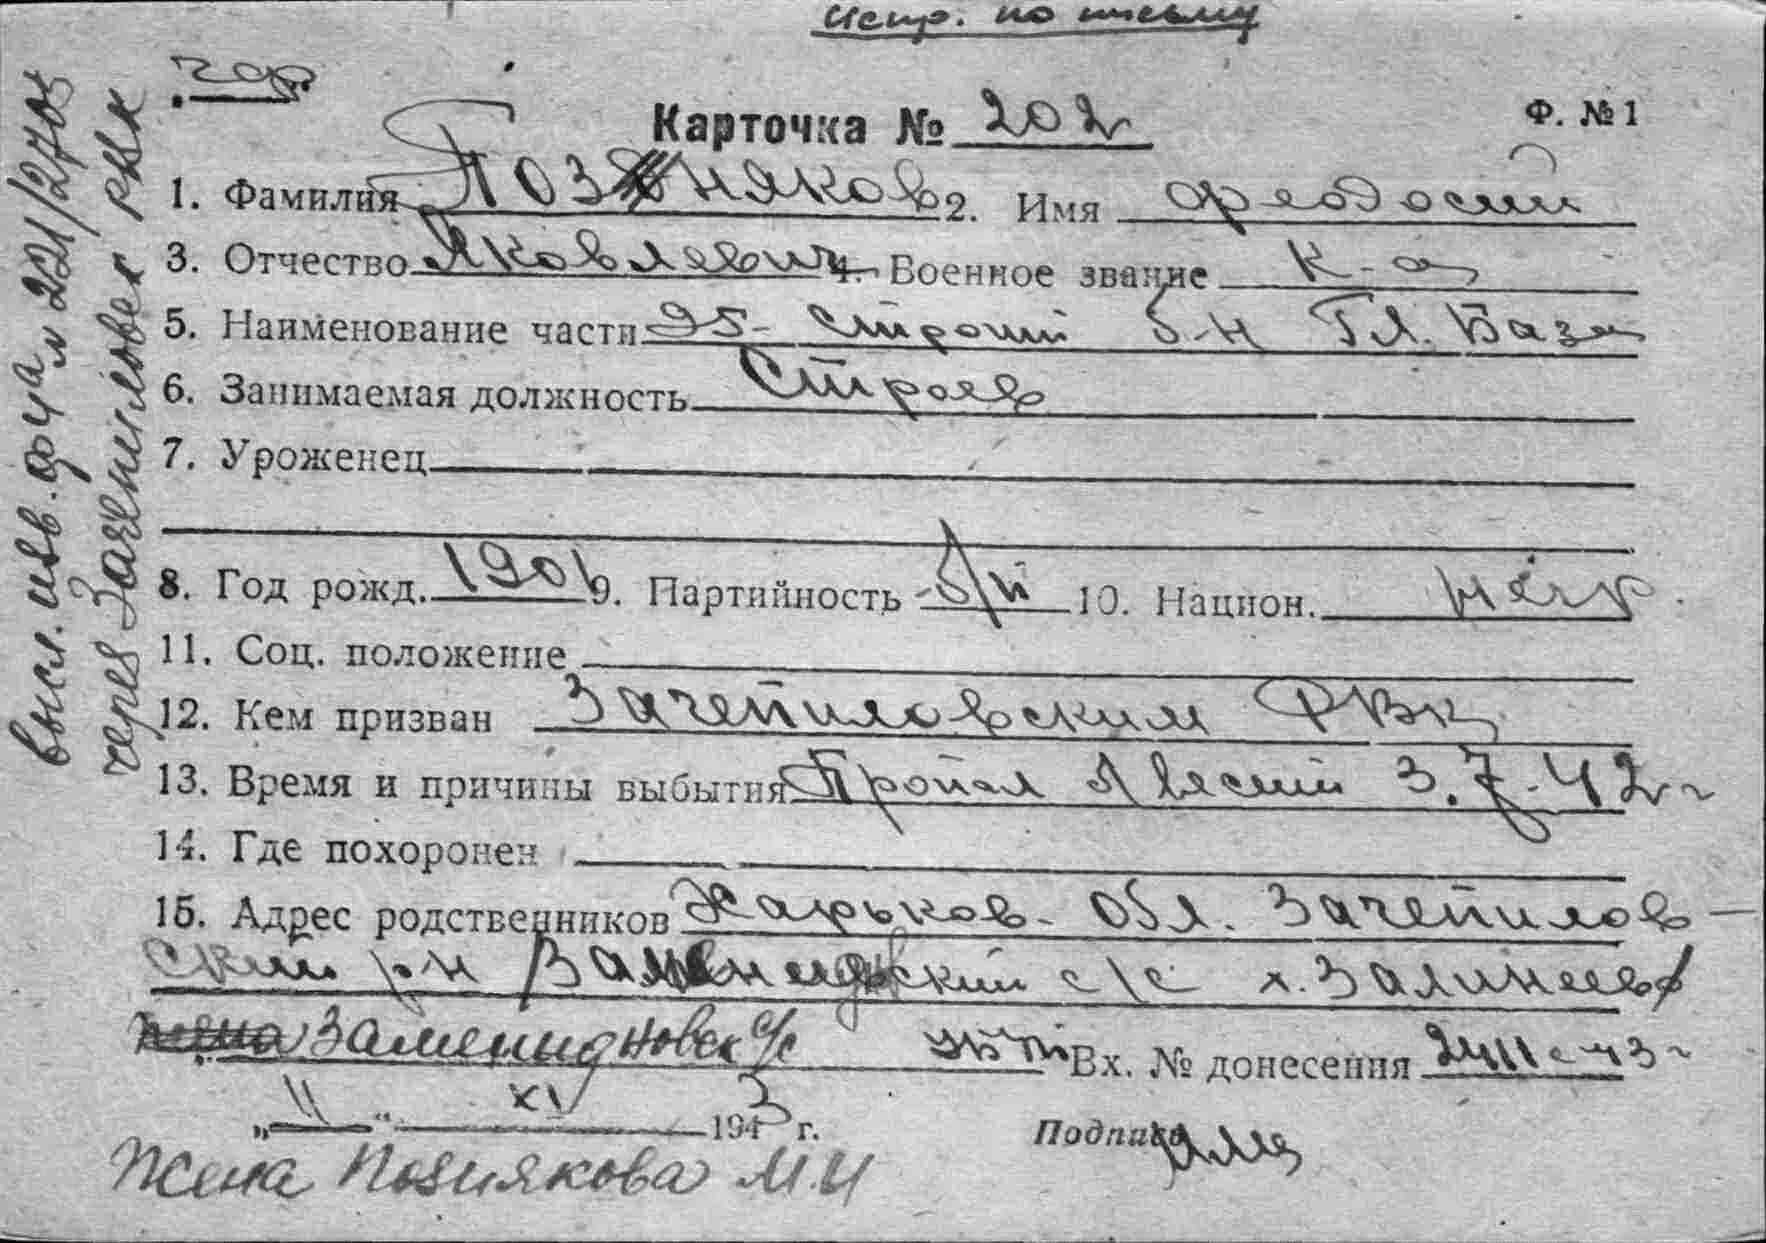 испр. по письму
чф
Карточка № 202 Ф. № 1
1. Фамилия Позняков 2. Имя Феодосий
3. Отчество Яковлевич 4. Военное звание к-ц
5. Наименование части 95 строит б-н Гл. База
6. Занимаемая должность Строев
7. Уроженец
8. Год рожд. 1901 9. Партийность б/п 10. Национ.
11. Соц. положение
12. Кем призван Зачепиловским РВК
13. Время и причины выбытия Пропал без вести 3.7.42 г
14. Где похоронен
15. Адрес родственников Харьков. обл. Зачепилов-
ский р-н ский с/с х. Залинеев
жена Заменидновск с/с Вх. № донесения с 43 г
„11“ XI 1943 г. Подпись
Жена Познякова М.И
высл. изв. ф у а м 221/270з
через Зачепиловск РВК